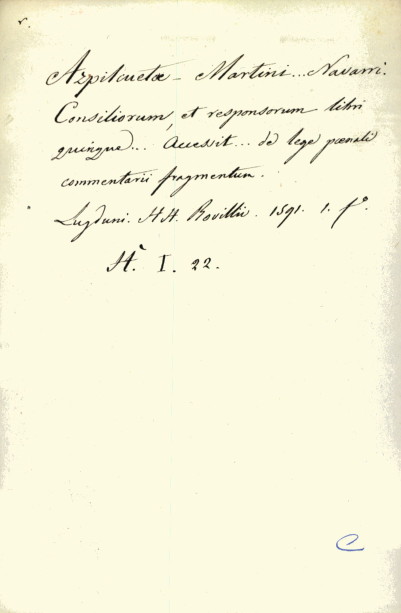 Azpilcuetæ - Martini... Navarri.
Consiliorum, et responsorum libri
quinque... Accessit... de lege pœnali
commentarii fragmentum.
Lugduni. HH. Rovillii. 1591. 1. fº.
I. 22.
C